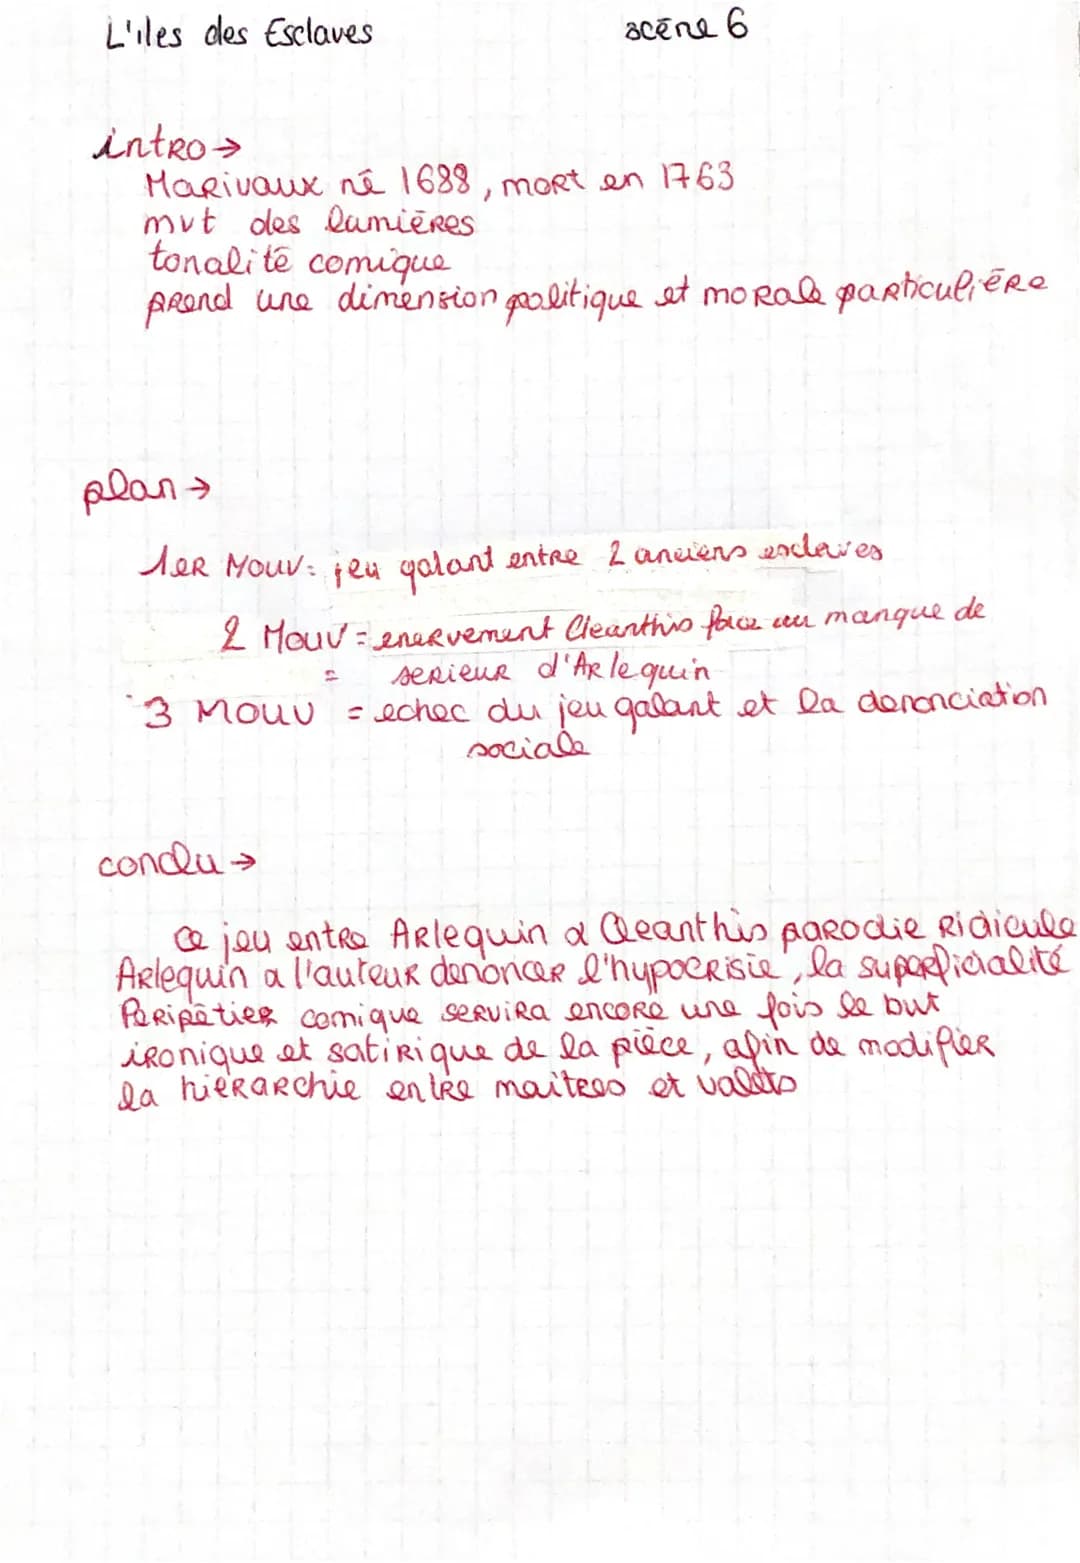 L'iles des Esclaves scēne 6
intro →
Marivaux né 1688, mort en 1763
mvt des lumiēres
tonalitē comique
prend une dimension politique et morale particuliēre
plan →
1er Mouv: jeu galant entre 2 anciens esclaves
2 Mouv = enervement Cleanthis face au manque de
= serieur d'Arlequin
3 Mouv = echec du jeu galant et la denonciation
sociale
conclu →
Ce jeu entre Arlequin a Cleanthis parodie Ridicule
Arlequin a l'auteur denoncer l'hypocrisie, la superficialité
Peripētiez comique servira encore une fois le but
ironique et satirique de la piēce, afin de modifier
la hierarchie entre maitres et valets